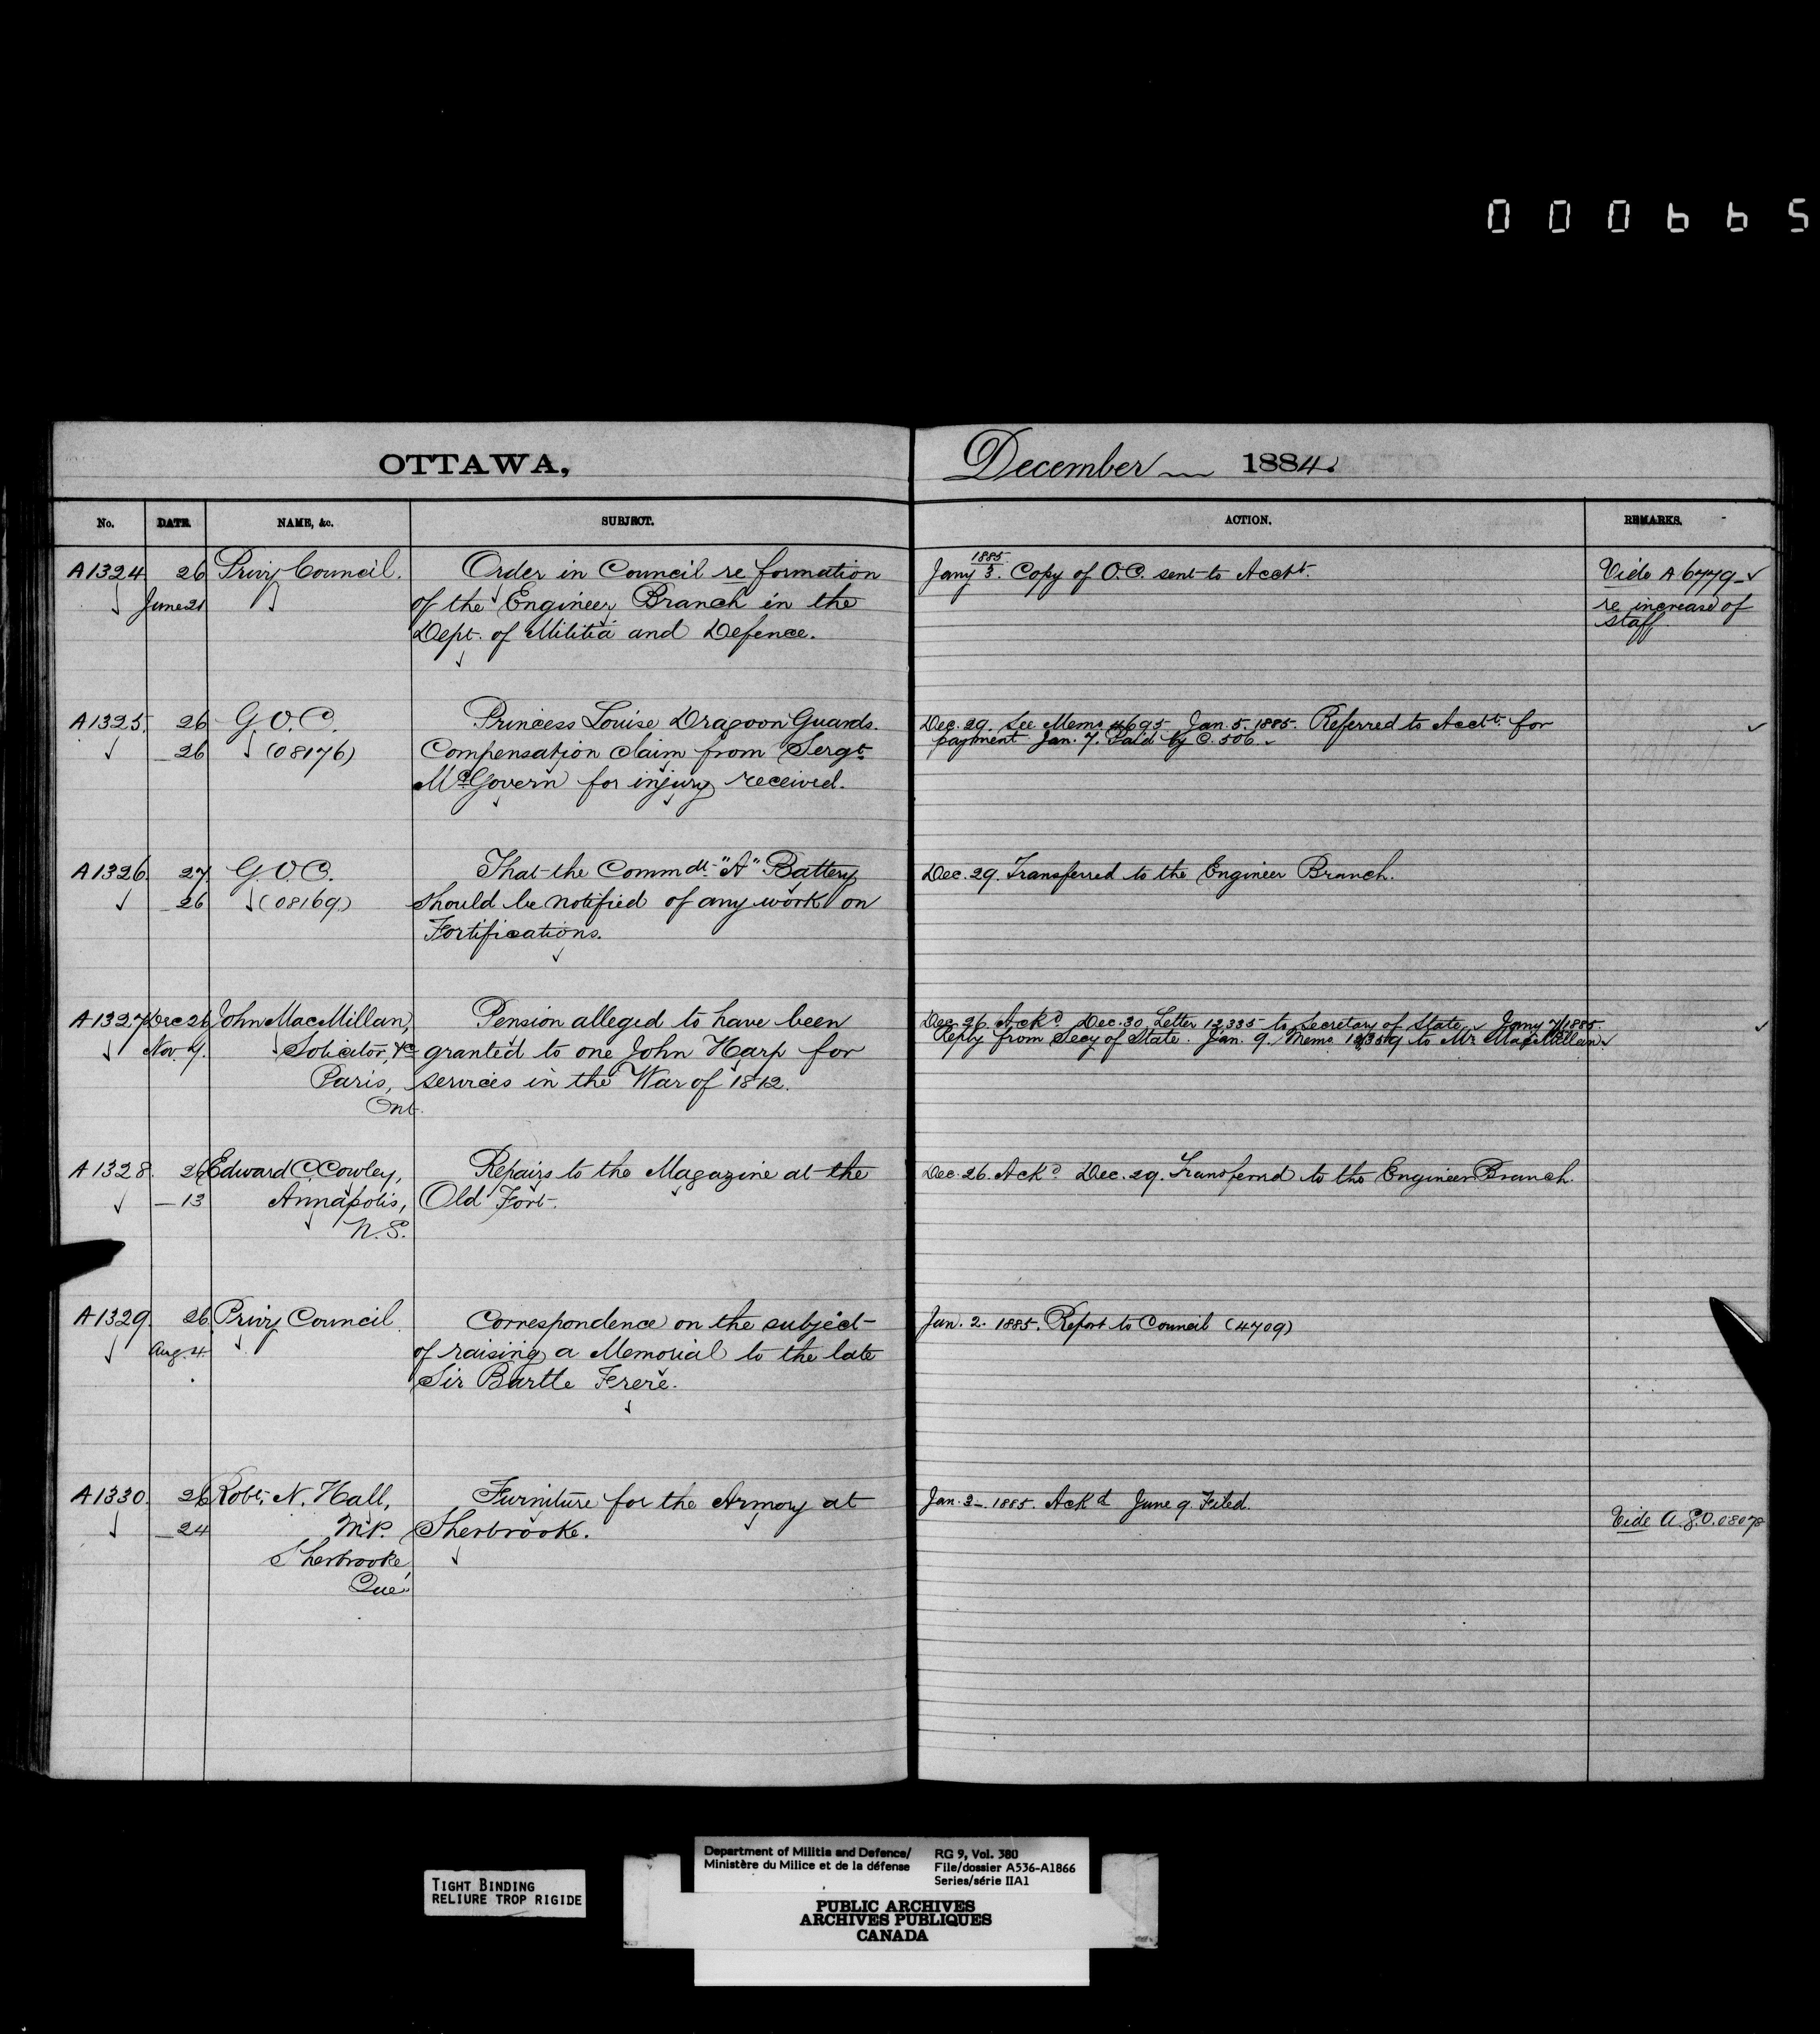 000665
OTTAWA,
December 1884.
No. DATE. NAME, &c. SUBJECT. ACTION. REMARKS.
A1324 26 Privy Council. Order in Council re formation
June 21 of the Engineer Branch in the
Dept. of Militia and Defence.
1885
Jany 3. Copy of O.C. sent to Acctt.
Vide A 6779
re increase of
staff
A1325. 26 G.O.C. Princess Louise Dragoon Guards.
26 (08176) Compensation claim from Sergt
McGovern for injury received.
Dec. 29. See Memo 4695 Jan. 5. 1885. Referred to Acctt. for
payment Jan. 7. Paid by C. 506.
A1326. 27 G.O.C. That the Commdt. "A" Battery
26 (08169) should be notified of any work on
Fortifications.
Dec. 29. Transferred to the Engineer Branch.
A1327 Dec 26 John MacMillan, Pension alleged to have been
Nov. 4. Solicitor, &c granted to one John Harp for
Paris, services in the War of 1812.
Ont.
Dec. 26. Ackd. Dec. 30. Letter 12,335 to Secretary of State. Jany 7/1885.
Reply from Secy of State. Jan. 9. Memo to Mr MacMillan.
A1328. 26 Edward C. Cowley, Repairs to the Magazine at the
— 13 Annapolis, Old Fort.
N.S.
Dec. 26. Ackd. Dec. 29. Transferred to the Engineer Branch.
A1329. 26 Privy Council. Correspondence on the subject
Aug. 4. of raising a Memorial to the late
Sir Bartle Frere.
Jan. 2. 1885. Report to Council (4709)
A1330. 26 Robt. N. Hall, Furniture for the Armory at
24 M.P. Sherbrooke.
Sherbrooke,
Que.
Jan. 2. 1885. Ackd June 9. Filed.
Vide A.G.O. 08078
TIGHT BINDING
RELIURE TROP RIGIDE
Department of Militia and Defence/
Ministère du Milice et de la défense
RG 9, Vol. 380
File/dossier A536-A1866
Series/série IIA1
PUBLIC ARCHIVES
ARCHIVES PUBLIQUES
CANADA